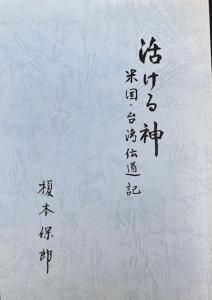 活ける神
米国・台湾伝道記
榎本保郎